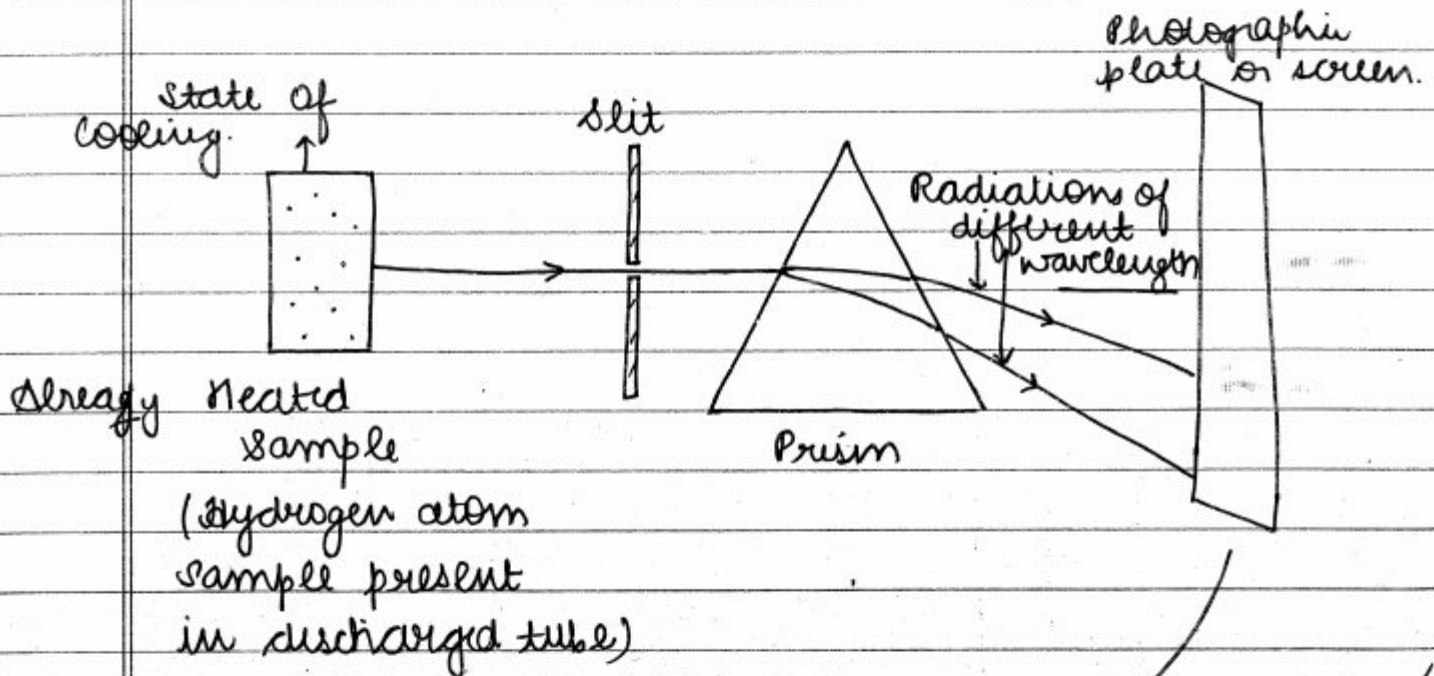 Photographic
plate or screen.
State of
cooling.
Slit
Radiations of
different
wavelength
Already Heated
Sample
Prism
(Hydrogen atom
sample present
in discharged tube)